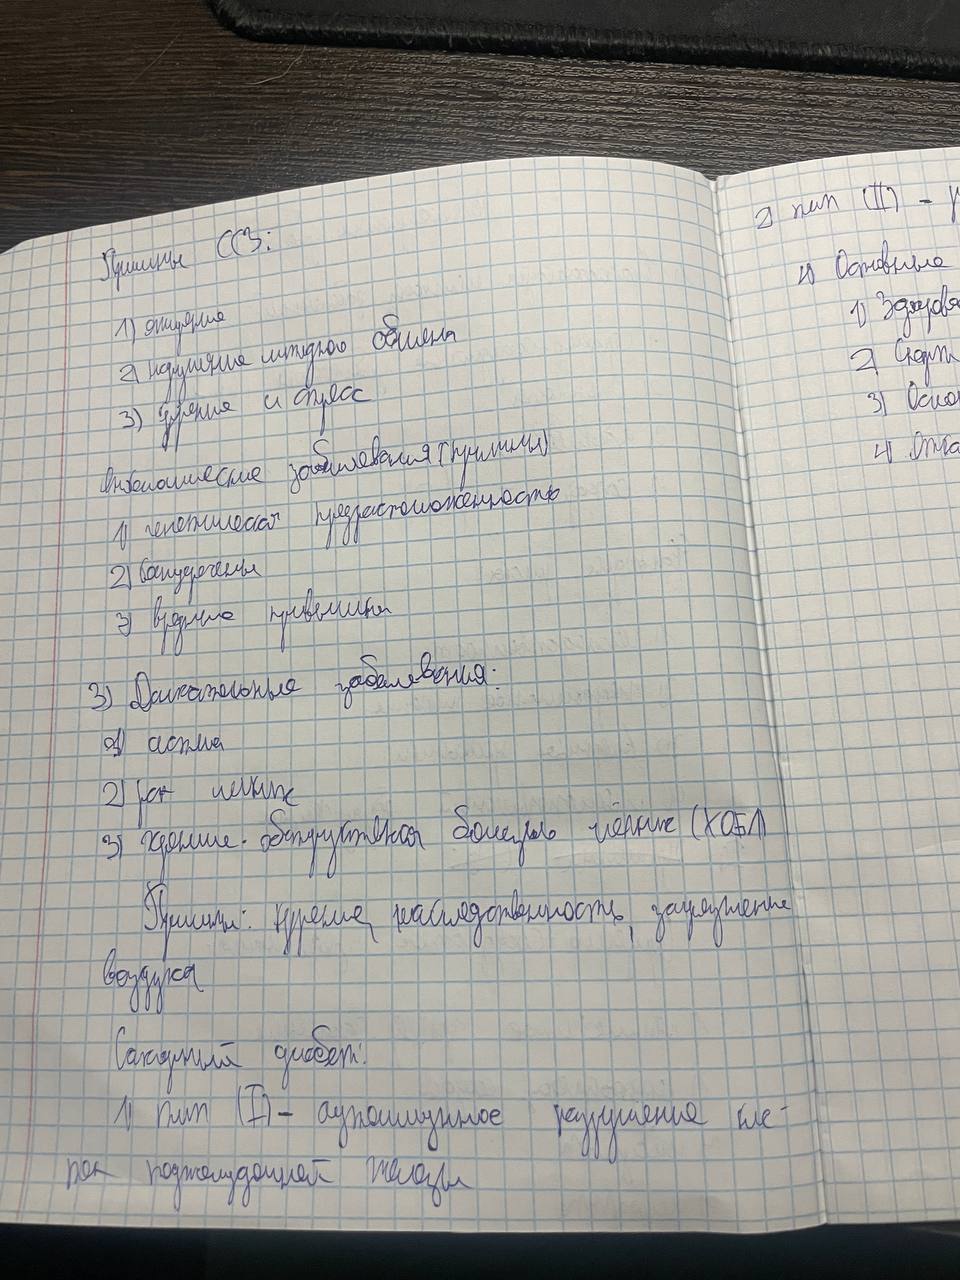 Причины ССЗ:
1) ожирение
2) нарушение липидного обмена
3) курение и стресс
Онкологические заболевания (причины)
1) генетическая предрасположенность
2) канцерогены
3) вредные привычки
3) Дыхательные заболевания:
1) астма
2) рак легких
3) хронич. обструктивная болезнь лёгких (ХОБЛ)
Причины: курение, наследственность, загрязнение
воздуха
Сахарный диабет:
1) тип (I) - аутоиммунное разрушение кле-
ток поджелудочной железы
2) тип (II) -
4) Основные
1)
2)
3)
4)